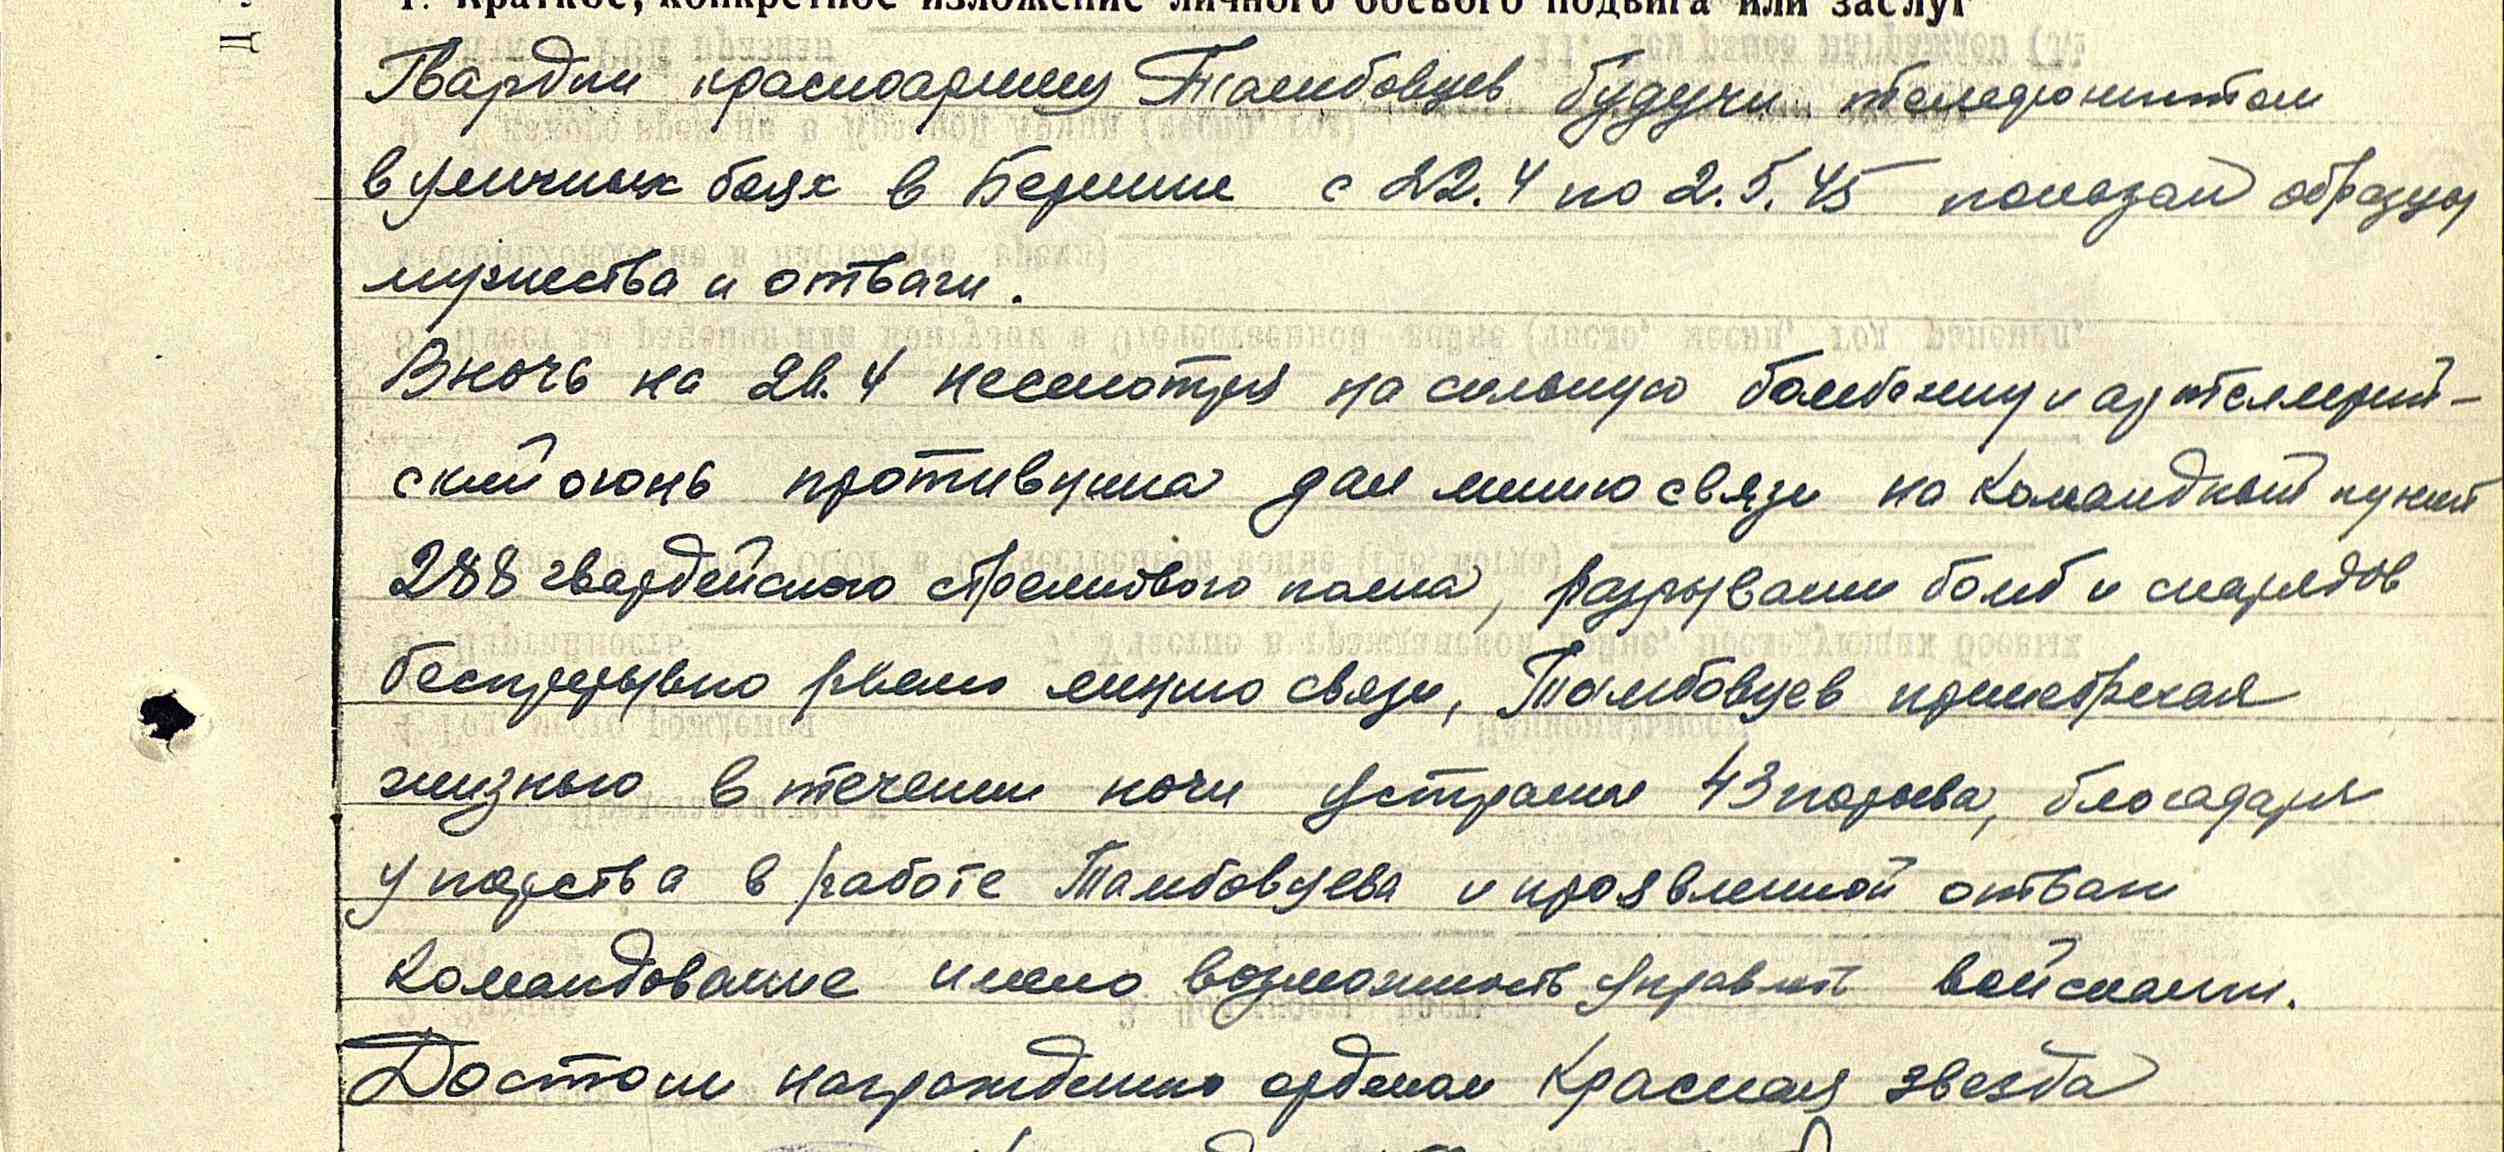 1. Краткое, конкретное изложение личного боевого подвига или заслуг
Гвардии красноармеец Тамбовцев будучи телефонистом
в уличных боях в Берлине с 22.4 по 2.5.45 показал образцы
мужества и отваги.
В ночь на 26.4 несмотря на сильную бомбежку и артеллерий-
ский огонь противника дал линию связи на командный пункт
288 гвардейского стрелкового полка, разрывами бомб и снарядов
беспрерывно рвало линию связи, Тамбовцев принебрегая
жизнью в течении ночи устранил 43 порыва, благодаря
упорства в работе Тамбовцева и проявленной отваги
командование имело возможность управлять войсками.
Достоин награждению орденом Красная звезда